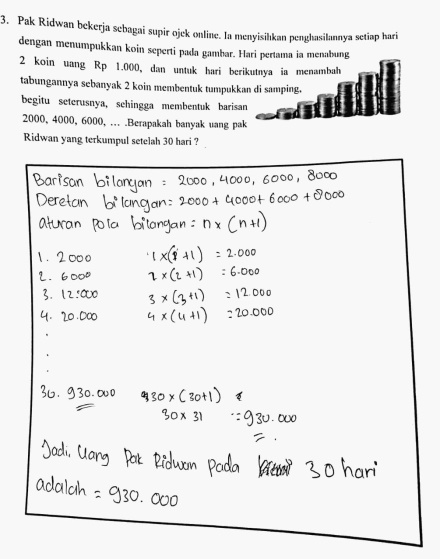 3. Pak Ridwan bekerja sebagai supir ojek online. Ia menyisihkan penghasilannya setiap hari
dengan menumpukkan koin seperti pada gambar. Hari pertama ia menabung
2 koin uang Rp 1.000, dan untuk hari berikutnya ia menambah
tabungannya sebanyak 2 koin membentuk tumpukkan di samping,
begitu seterusnya, sehingga membentuk barisan
2000, 4000, 6000, ... .Berapakah banyak uang pak
Ridwan yang terkumpul setelah 30 hari ?
Barisan bilangan : 2000, 4000, 6000, 8000
Deretan bilangan : 2000 + 4000 + 6000 + 8000
aturan pola bilangan : n x (n+1)
1. 2000 1x(1+1) = 2.000
2. 6000 2x(2+1) = 6.000
3. 12.000 3x(3+1) = 12.000
4. 20.000 4x(4+1) = 20.000
.
.
.
30. 930.000 30x(30+1)
30x31 = 930.000
Jadi, Uang Pak Ridwan pada 30 hari
adalah = 930.000